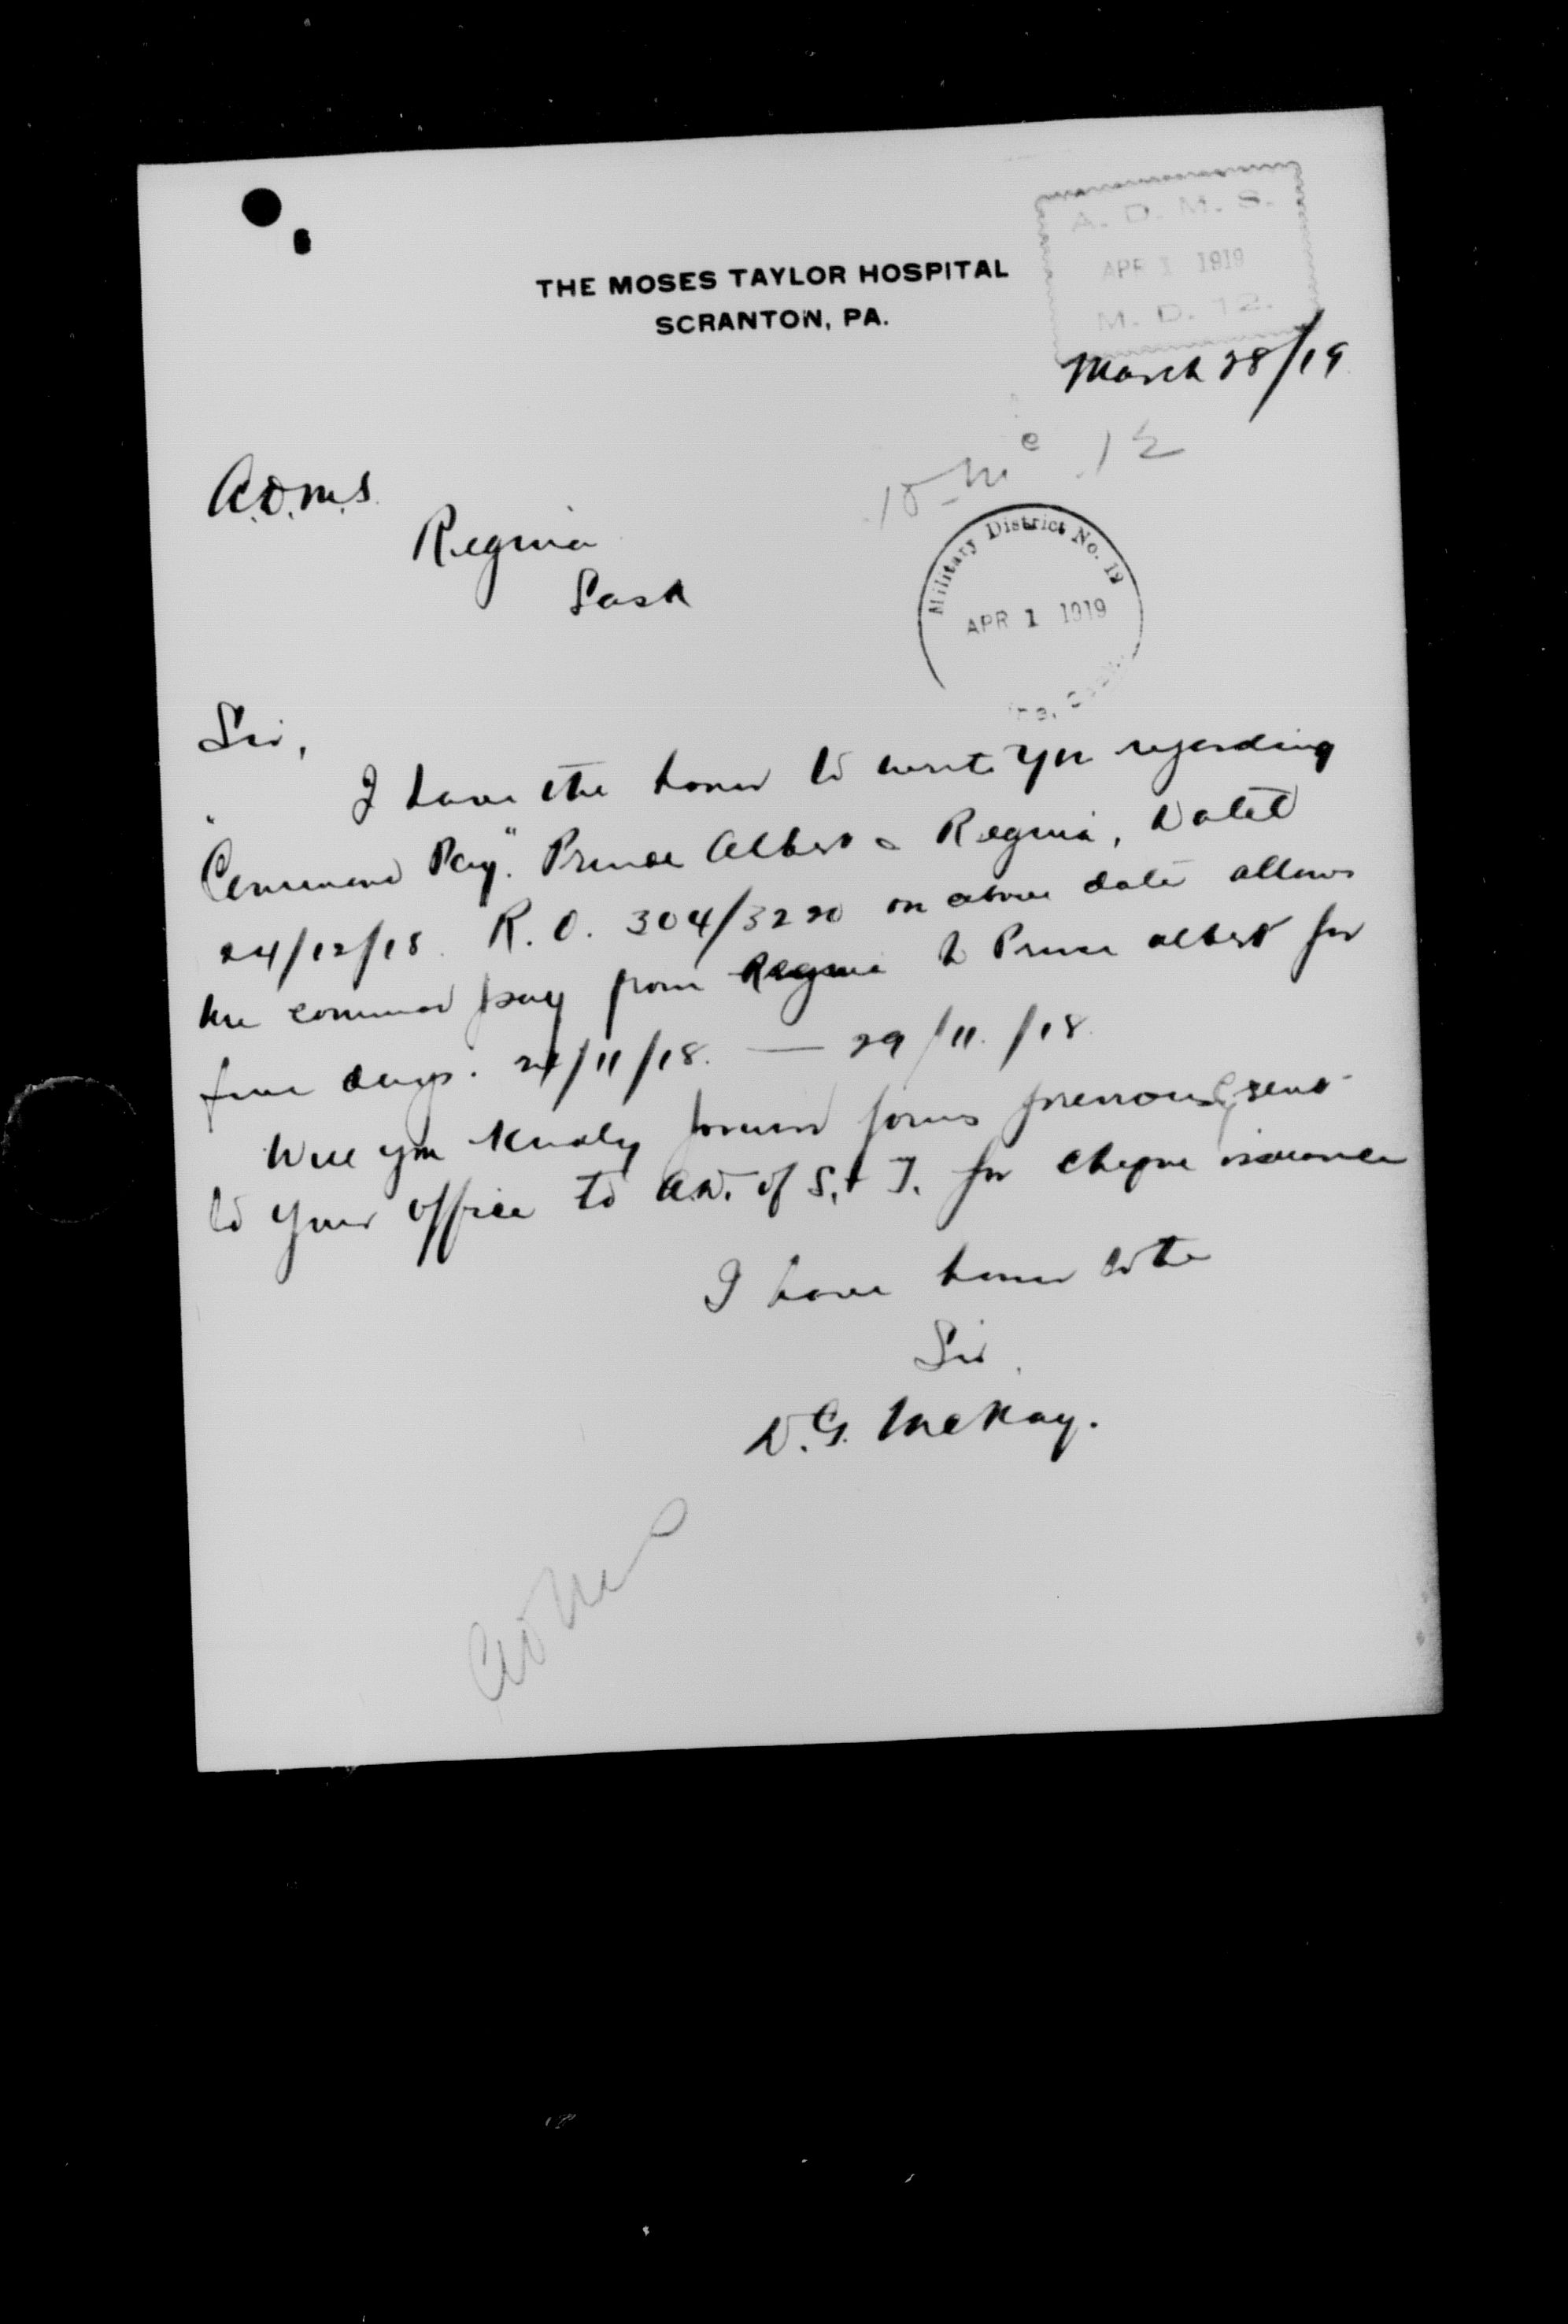 A. D. M. S.
APR 1 1919
M. D. 12.
THE MOSES TAYLOR HOSPITAL
SCRANTON, PA.
March 28/19
A.D.M.S.
Regina
Sask
Military District No. 12
APR 1 1919
Sir,
I have the honor to write you regarding
"Command Pay." Prince Albert & Regina, Dated
24/12/18. R.O. 304/3220 on above date allows
me command pay from Regina to Prince Albert for
five days. 24/11/18. — 29/11/18.
Will you kindly forward forms previously sent
to your office to A.D. of S. & T. for cheque issuance
I have honor to be
Sir,
D.G. McKay.
ADMS